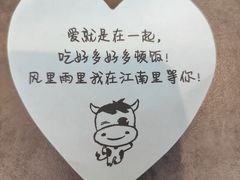 爱就是在一起，
吃好多好多顿饭！
风里雨里我在江南里等你！